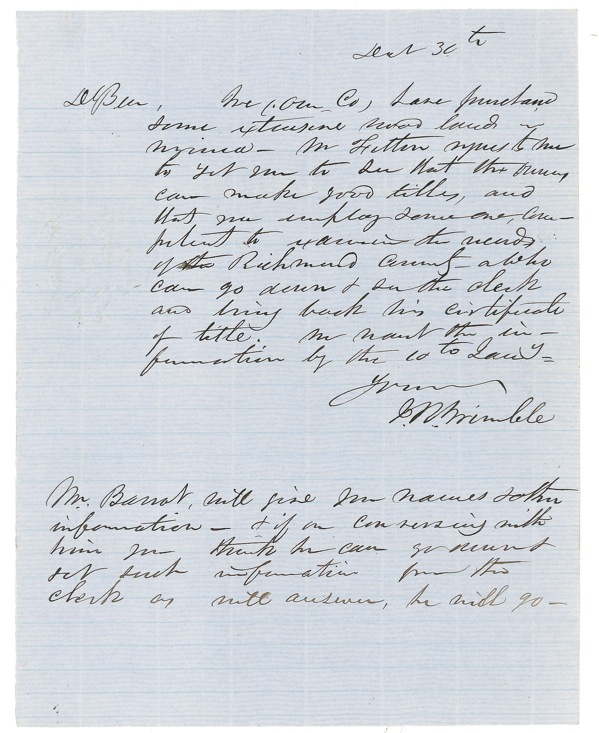 30th
We (our Co) have purchased
some extensive wood lands in
Virginia — Mr requests me
to get you to see that the owners
can make good titles, and
that we employ some one, com-
petent to examine the records
of the Richmond County — who
can go down & see the clerk
and bring back his certificate
of title. We want the in-
formation by the 10th Jany —
Yours
I. R. Trimble
Mr. Barrot, will give you names & other
information — & if on conversing with
him you think he can go down &
get such information from the
clerk as will answer, he will go —